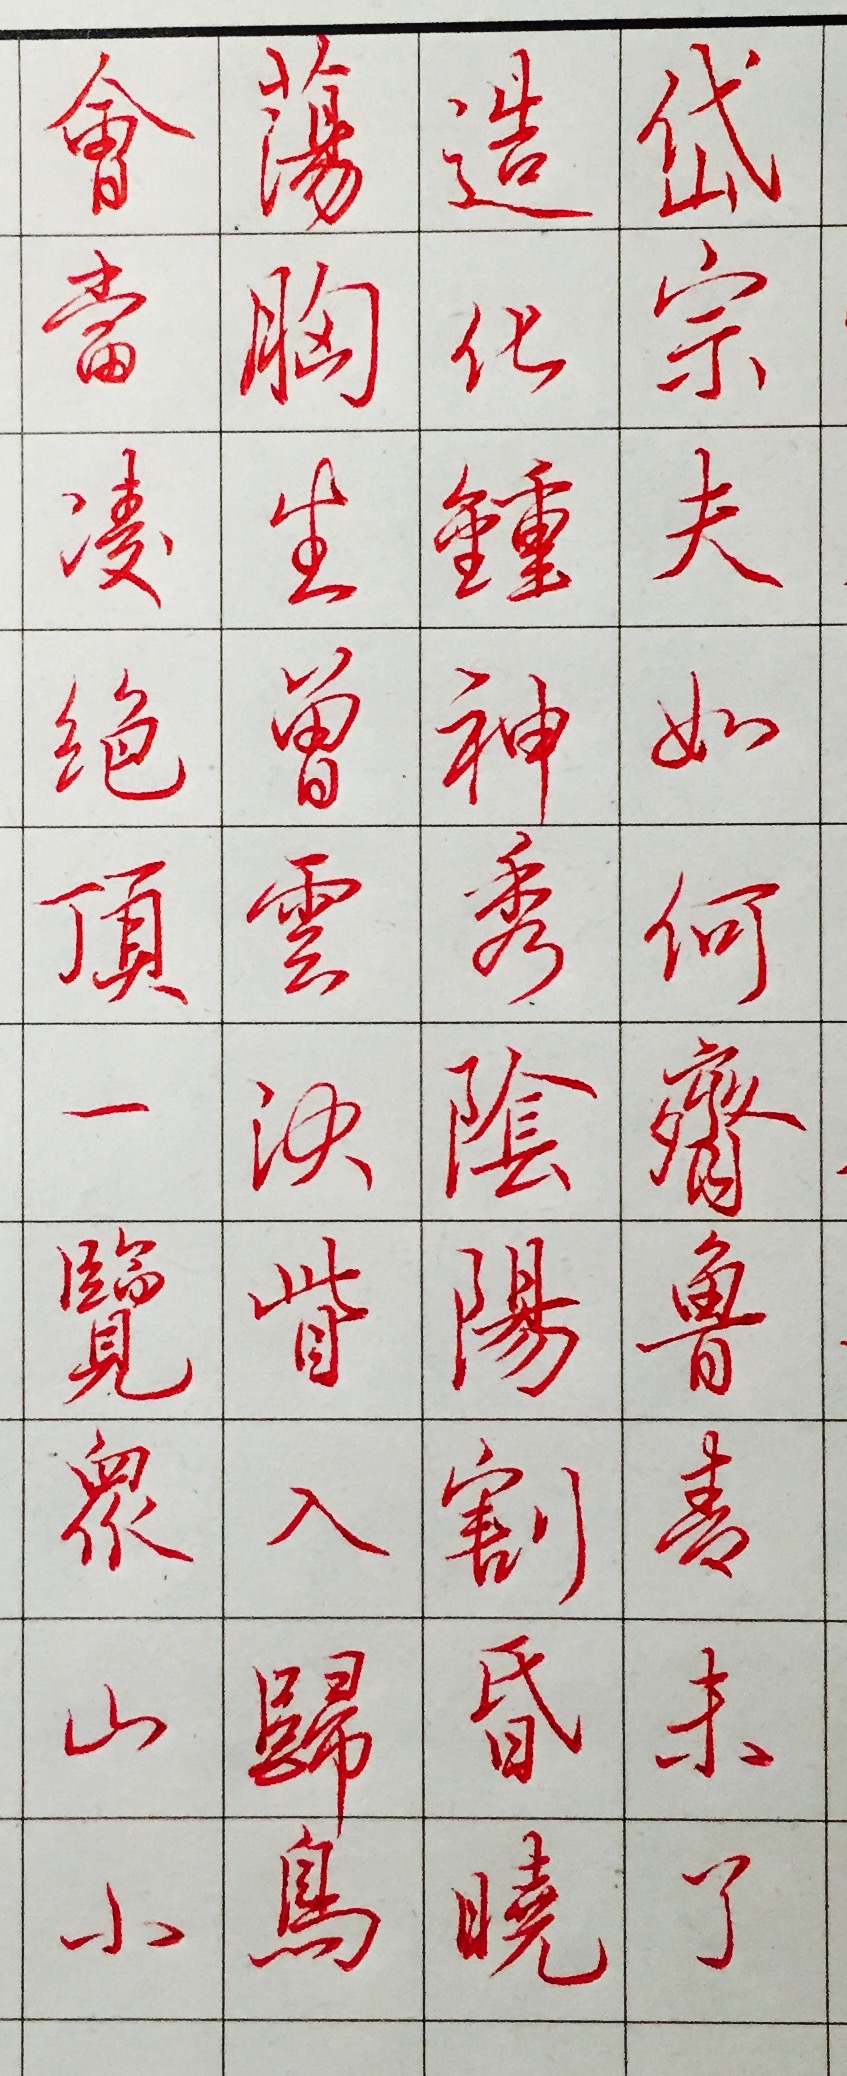 岱宗夫如何齊魯青未了
造化鍾神秀陰陽割昏曉
蕩胸生曾雲決眥入歸鳥
會當凌絕頂一覽衆山小